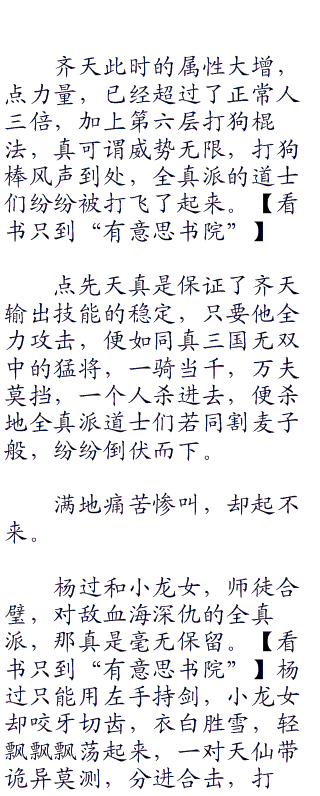 齐天此时的属性大增，
点力量，已经超过了正常人
三倍，加上第六层打狗棍
法，真可谓威势无限，打狗
棒风声到处，全真派的道士
们纷纷被打飞了起来。【看
书只到“有意思书院”】
点先天真是保证了齐天
输出技能的稳定，只要他全
力攻击，便如同真三国无双
中的猛将，一骑当千，万夫
莫挡，一个人杀进去，便杀
地全真派道士们若同割麦子
般，纷纷倒伏而下。
满地痛苦惨叫，却起不
来。
杨过和小龙女，师徒合
璧，对敌血海深仇的全真
派，那真是毫无保留。【看
书只到“有意思书院”】杨
过只能用左手持剑，小龙女
却咬牙切齿，衣白胜雪，轻
飘飘飘荡起来，一对天仙带
诡异莫测，分进合击，打